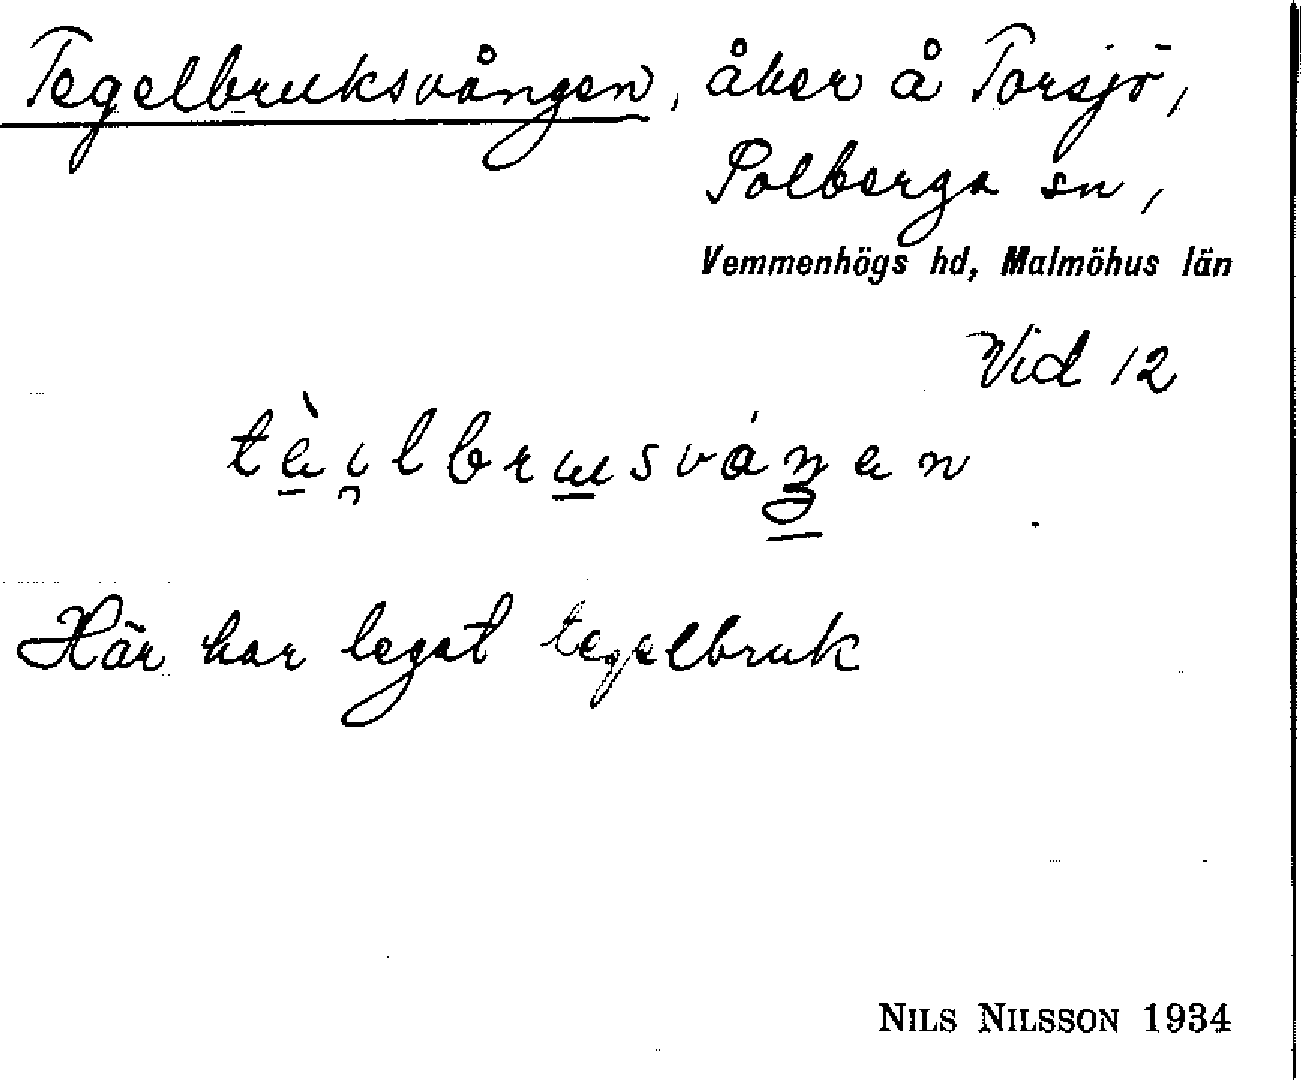 Tegelbruksvången, åker å Torsjö,
Solberga sn,
Vemmenhögs hd, Malmöhus län
Vid 12
Här har legat tegelbruk
NILS NILSSON 1934